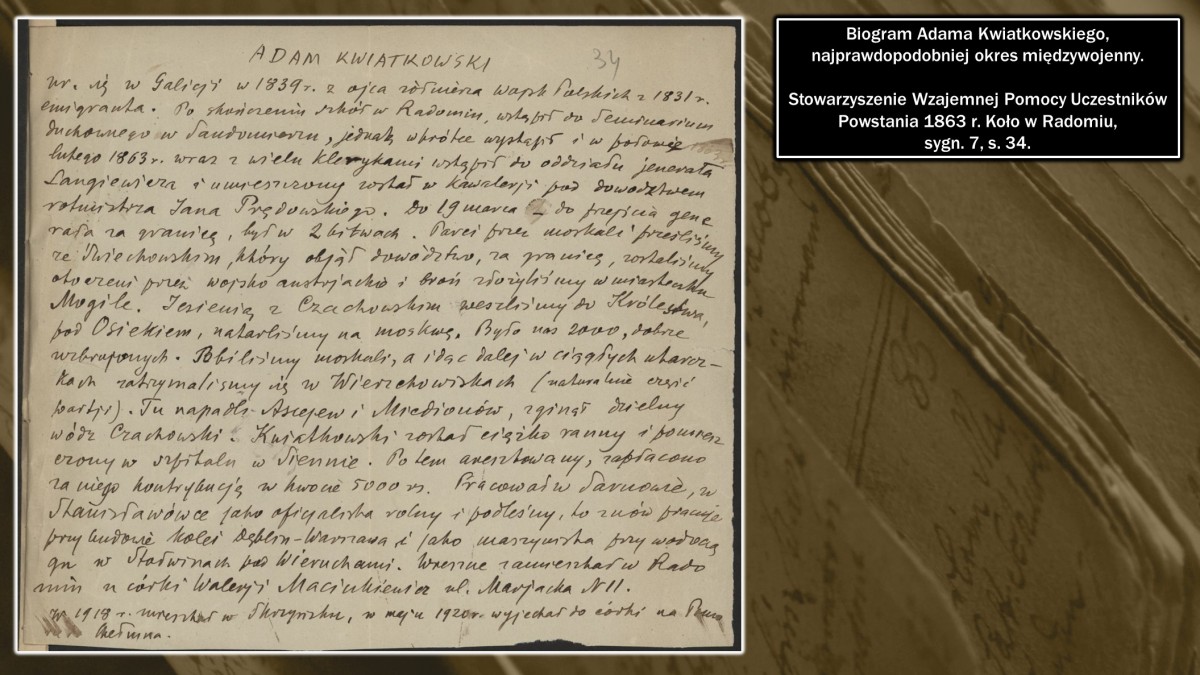 ADAM KWIATKOWSKI
34
ur. się w Galicji w 1839 r. z ojca żołnierza wojsk Polskich z 1831 r.
emigranta. Po skończeniu szkół w Radomiu, wstąpił do Seminarium
duchownego w Sandomierzu, jednak wkrótce wystąpił i w połowie
lutego 1863 r. wraz z wielu klerykami wstąpił do oddziału jenerała
Langiewicza i umieszczony został w kawalerji pod dowództwem
rotmistrza Jana Prędowskiego. Do 19 marca – do przejścia gene
rała za granicę, był w 2 bitwach. Parci przez moskali przeszliśmy
ze Śmiechowskim, który objął dowództwo, za granicę, zostaliśmy
otoczeni przez wojsko austrjackie i broń złożyliśmy w miasteczku
Mogile. Jesienią z Czachowskim weszliśmy do Królestwa,
pod Osiekiem, natarliśmy na moskwę. Było nas 2000, dobrze
uzbrojonych. Pobiliśmy moskali, a idąc dalej w ciągłych utarcz-
kach zatrzymaliśmy się w Wierzchowiskach (naturalnie część
partji). Tu napadli Asiejew i Miedianów, zginął dzielny
wódz Czachowski. Kwiatkowski został ciężko ranny i pomiesz
czony w szpitalu w Siennie. Potem aresztowany, zapłacono
za niego kontrybucją w kwocie 5000 rs. Pracował w Tarnowie, w
Stanisławówce jako oficjalista rolny i podleśny, to znów pracuje
przy budowie kolei Dęblin-Warszawa i jako maszynista przy wodocią
gu w pod Wieruchami. Wreszcie zamieszkał w Rado
miu u córki Walerji Maciukiewicz ul. Marjacka N 11.
W 1918 r. mieszkał w Skrzynsku, w maju 1920 r. wyjechał do córki na
Chełmna.
Biogram Adama Kwiatkowskiego,
najprawdopodobniej okres międzywojenny.
Stowarzyszenie Wzajemnej Pomocy Uczestników
Powstania 1863 r. Koło w Radomiu,
sygn. 7, s. 34.